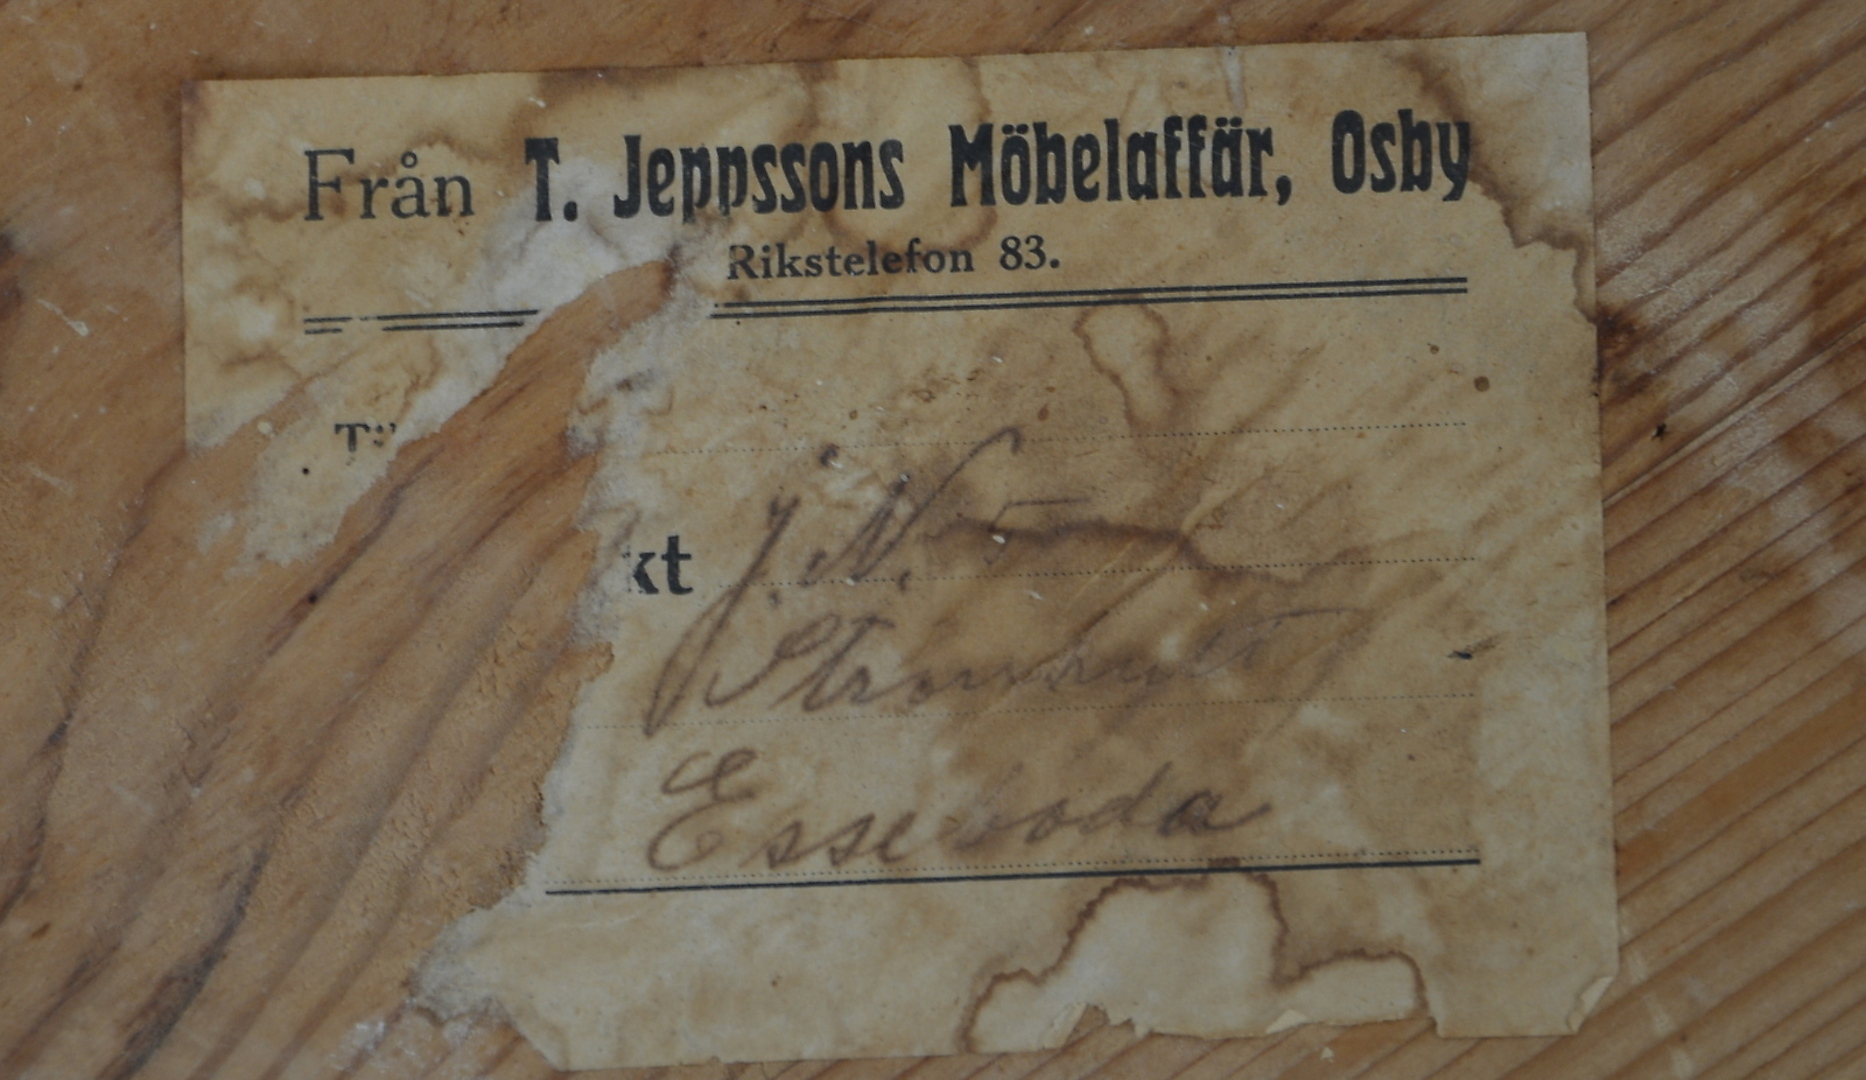 Från T. Jeppssons Möbelaffär, Osby
Rikstelefon 83.
kt J. N.
Esseboda